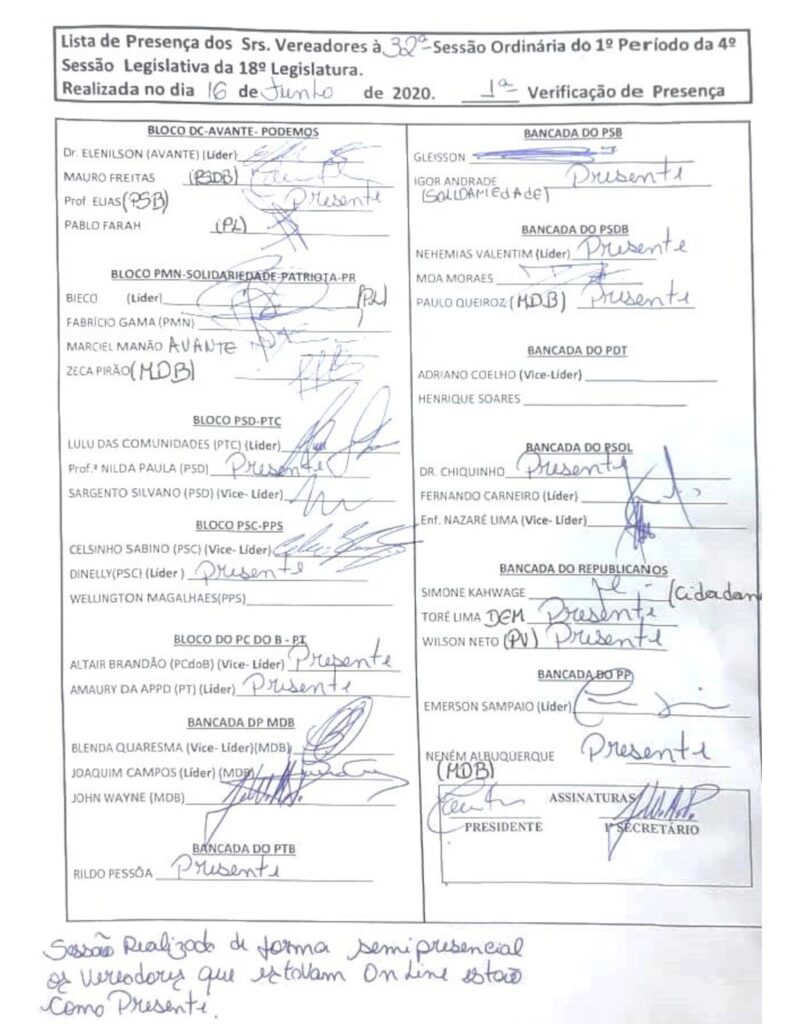 Lista de Presença dos Srs. Vereadores à 32ª Sessão Ordinária do 1º Período da 4º
Sessão Legislativa da 18º Legislatura.
Realizada no dia 16 de Junho de 2020. 1ª Verificação de Presença
BLOCO DC-AVANTE- PODEMOS
Dr. ELENILSON (AVANTE) (Líder)
MAURO FREITAS (PSDB)
Prof ELIAS (PSB) Presente
PABLO FARAH (PL)
BLOCO PMN-SOLIDARIEDADE-PATRIOTA-PR
BIECO (Líder) (PL)
FABRÍCIO GAMA (PMN)
MARCIEL MANÃO AVANTE
ZECA PIRÃO (MDB)
BLOCO PSD-PTC
LULU DAS COMUNIDADES (PTC) (Líder)
Prof.ª NILDA PAULA (PSD) Presente
SARGENTO SILVANO (PSD) (Vice- Líder)
BLOCO PSC-PPS
CELSINHO SABINO (PSC) (Vice- Líder)
DINELLY(PSC) (Líder ) Presente
WELLINGTON MAGALHAES(PPS)
BLOCO DO PC DO B - PT
ALTAIR BRANDÃO (PCdoB) (Vice- Líder) Presente
AMAURY DA APPD (PT) (Líder) Presente
BANCADA DP MDB
BLENDA QUARESMA (Vice- Líder)(MDB)
JOAQUIM CAMPOS (Líder) (MDB)
JOHN WAYNE (MDB)
BANCADA DO PTB
RILDO PESSÔA Presente
BANCADA DO PSB
GLEISSON
IGOR ANDRADE Presente
(SOLIDARIEDADE)
BANCADA DO PSDB
NEHEMIAS VALENTIM (Líder) Presente
MOA MORAES
PAULO QUEIROZ (MDB) Presente
BANCADA DO PDT
ADRIANO COELHO (Vice-Líder)
HENRIQUE SOARES
BANCADA DO PSOL
DR. CHIQUINHO Presente
FERNANDO CARNEIRO (Líder)
Enf. NAZARÉ LIMA (Vice- Líder)
BANCADA DO REPUBLICANOS
SIMONE KAHWAGE (Cidadan
TORÉ LIMA DEM Presente
WILSON NETO (PV) Presente
BANCADA DO PP
EMERSON SAMPAIO (Líder)
NENÉM ALBUQUERQUE Presente
(MDB)
ASSINATURAS
PRESIDENTE 1º SECRETÁRIO
Sessão Realizado de forma semipresencial
os Vereadores que estavam Online estão
Como Presente.